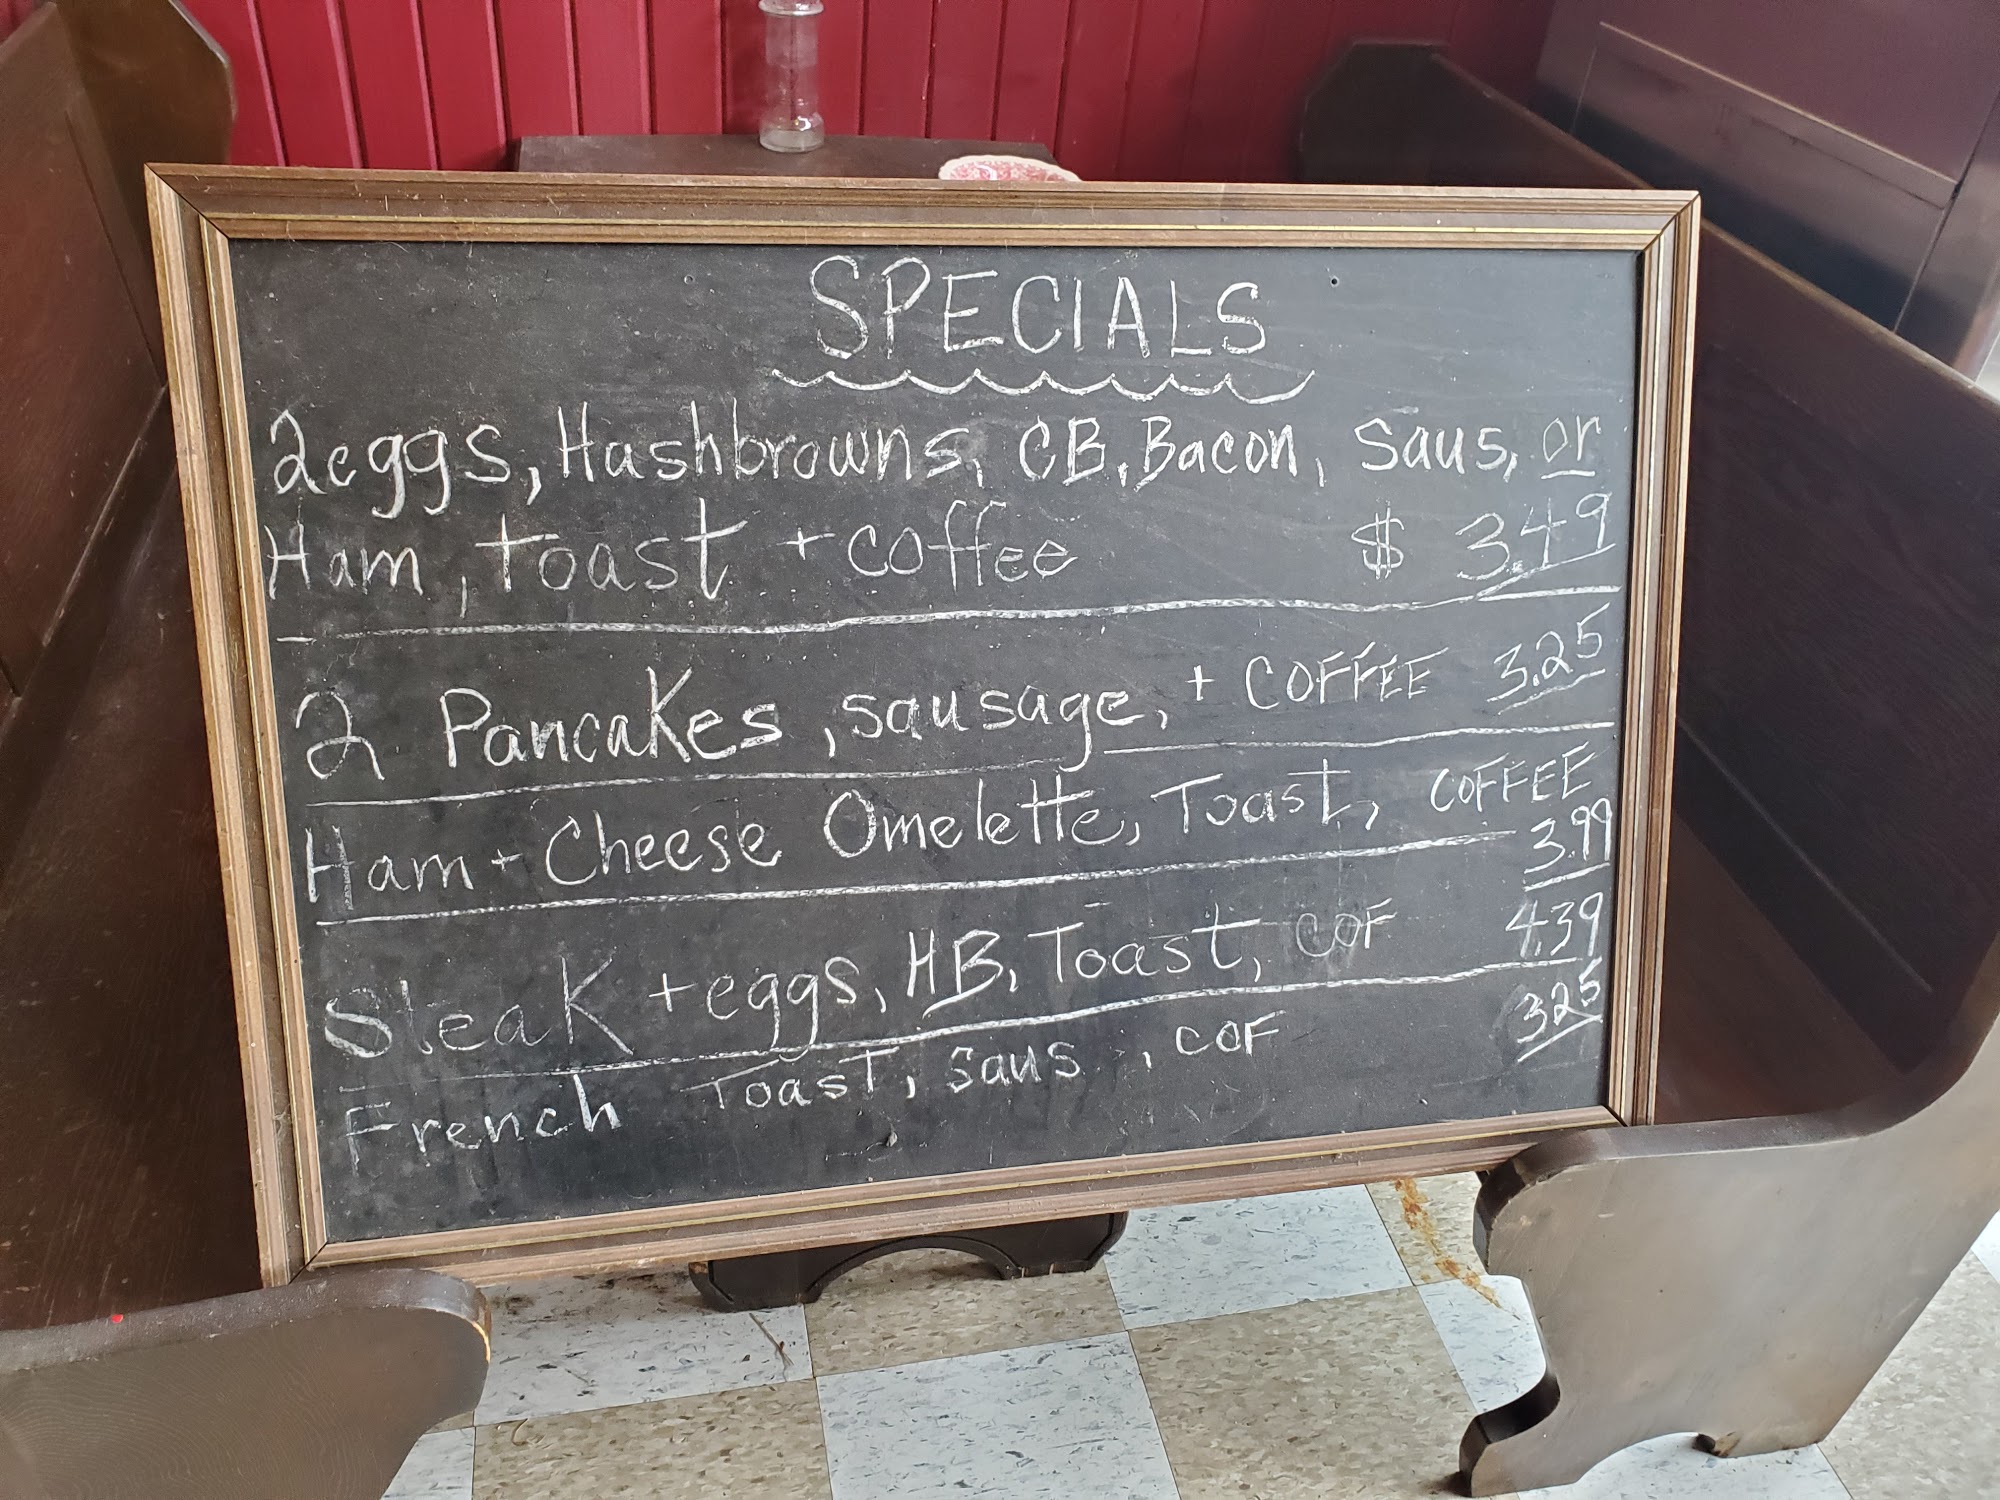 SPECIALS
2eggs, Hashbrowns, CB, Bacon, Saus, or
Ham, toast + coffee $ 3.49
2 Pancakes, sausage, + COFFEE 3.25
Ham + Cheese Omelette, Toast, COFFEE
3.99
Steak + eggs, HB, Toast, COF 4.39
French Toast, saus, COF 3.25